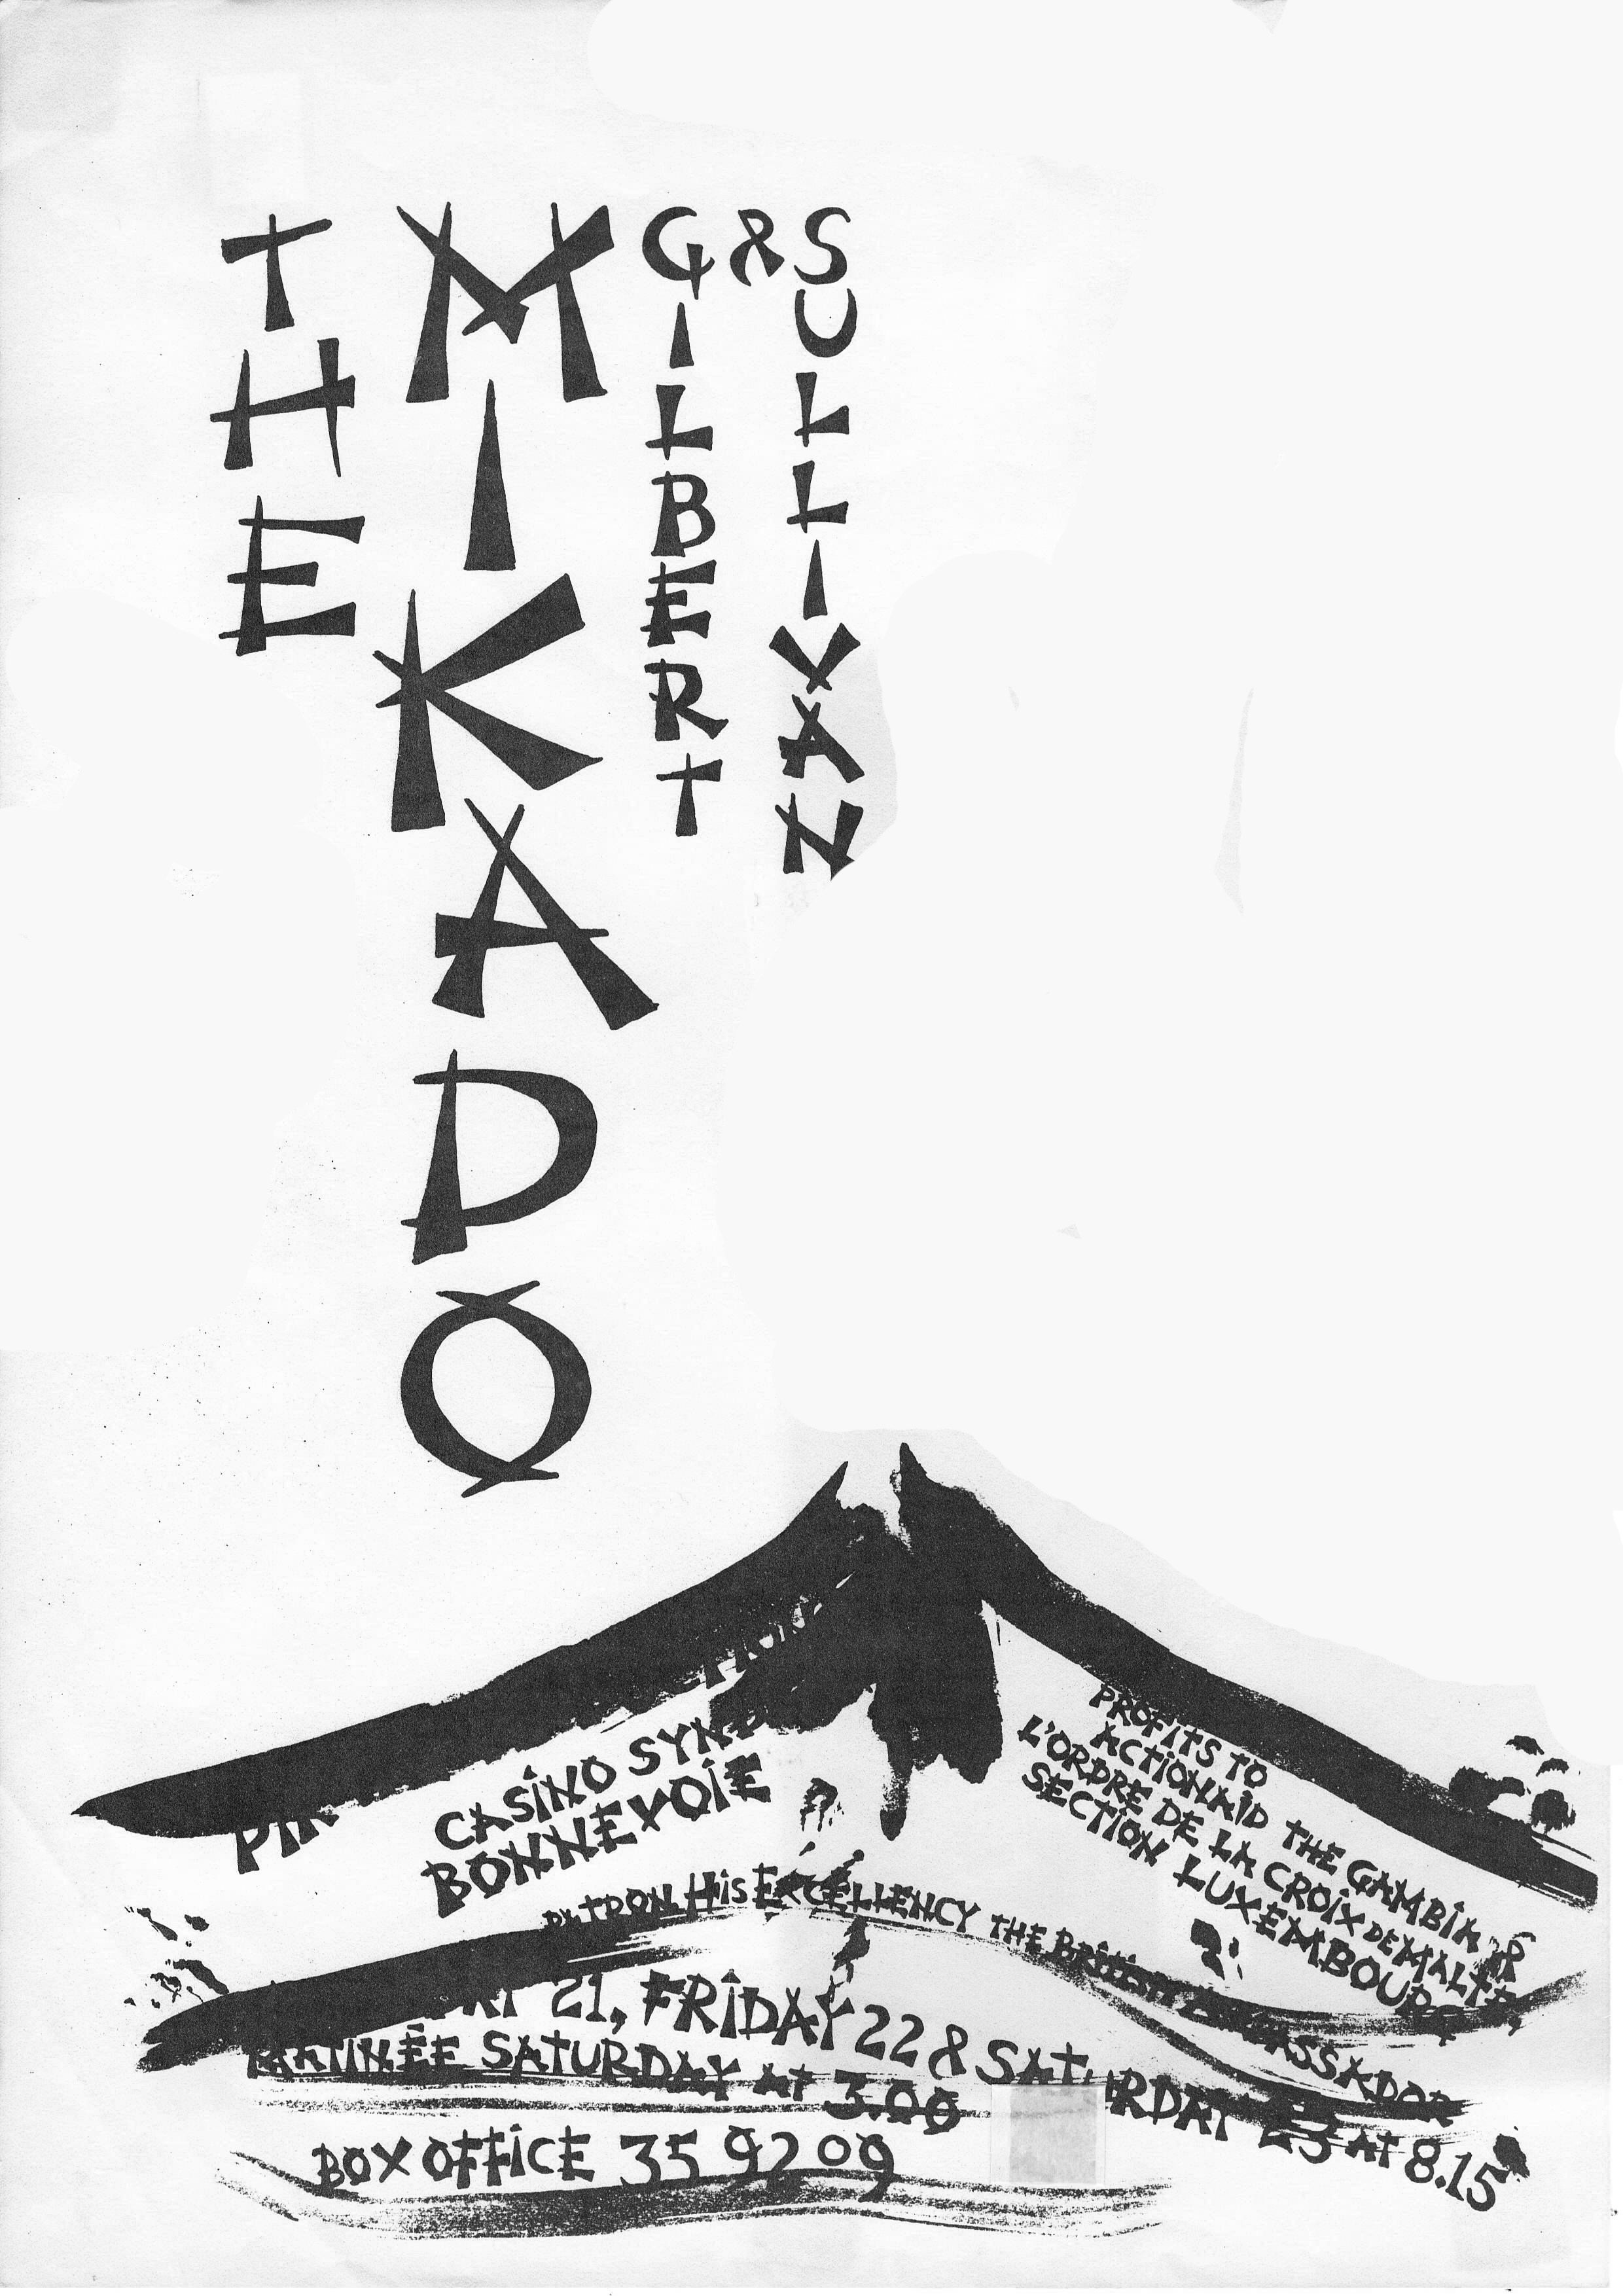 THE
MIKADO
GILBERT
&
SULLIVAN
CASINO
BONNEVOIE
PROFITS TO
ACTIONAID THE GAMBIA &
L'ORDRE DE LA CROIX DE MALTE,
SECTION LUXEMBOURG
PATRON HIS EXCELLENCY THE BRITISH AMBASSADOR
21, FRIDAY 22 & SATURDAY 23 AT 8.15
MATINÉE SATURDAY AT 3.00
BOX OFFICE 35 92 09